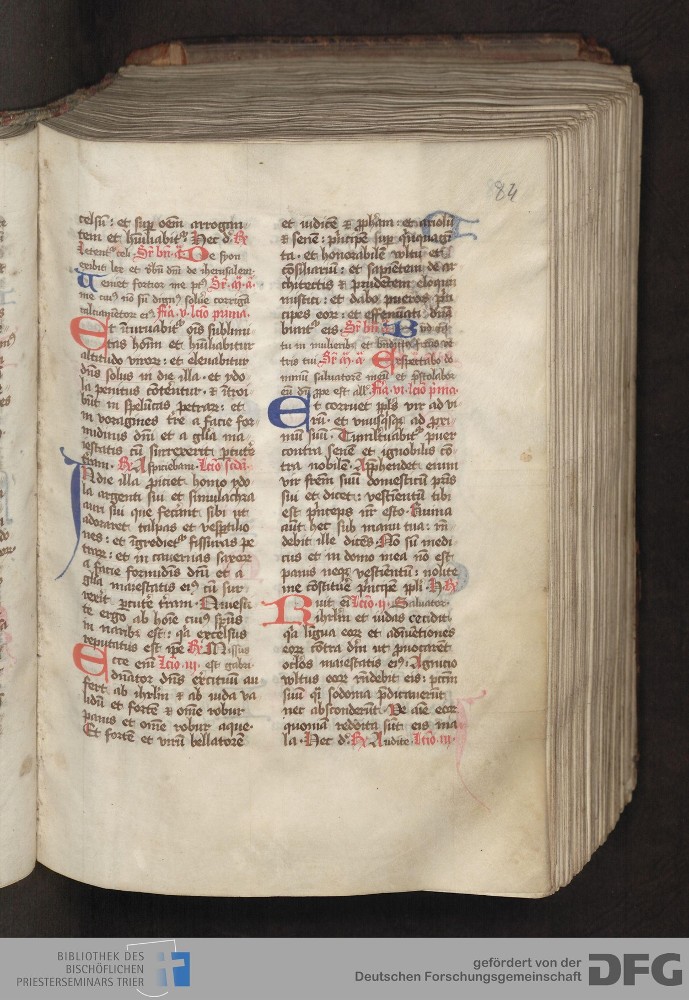 84
celsū: et sup oēm arrogan
tem et hūiliabitᵉ Hec d: R̷
Letent᷒ celi Sr̄ bn̄ ā De syon
exibit lex et v̄bū dn̄i de iherusalem
Veniet fortior me pꝰ Sr̄ m̄ a
me cuiꝰ nō sū dignꝰ solue corrigiā
calciamētor eiꝰ Fīa v lc̄io prima
Et īcuruabitᵉ oīs sublimi
tas hōīm et hūiliabitur
altitudo viror: et eleuabitur
dn̄s solus in die illa et ydo
la penitus cōterentur et ītroi
būt in speluncas petrar: et
in voragines tr̄e a facie for
midinis dn̄i et a glīa ma
iestatis eiꝰ cū surrexerit pcute
terram R̷ Aspiciebam Lc̄io scdā
In die illa proiciet homo ydo
la argenti sui et simulachra
auri sui que fecerat sibi ut
adoraret talpas et vesptilio
nes: et īgredietᵉ fissuras pe
trar: et in cauernas saxor
a facie formidinis dn̄i et a
glīa maiestatis eiꝰ cū sur
rexit pcute terram Quiesci
te ergo ab hoīe cuiꝰ spūs
in narib est: qa excelsus
reputatus est ipe R̷ Missus
Ecce enī Lc̄io iii est gabri
dn̄ator dn̄s excituū au
fert ab ihrlm et ab iuda va
lidū et fortē et omē robur
panis et omē robur aque
Et fortē et virū bellatorē
et iudicē et pphām et ariolū
et senē: pricipē sup quiquagi
ta et honorabilē vltu et
cōsiliariū: et sapiētem de ar
chitectis et prudētem eloquii
mistici: et dabo pueros pri
cipes eor: et effeminati dn̄a
būnt eis Sr̄ bn̄ Bn̄dicta
tu in mulierib et bn̄dictꝰ fructꝰ vē
tris tui Sr̄ m̄ a Expectabo do
minū saluatorē meū et pstolabor
eū dū ppe est all̄a Fīa vi lc̄io pma
Et corruet ppls vir ad vi
rū et vnusqisq ad proxi
mū suū Tumltuabitᵉ puer
contra senē et ignobilis cō
tra nobilē Apphendet enim
vir frēm suū domesticū pris
sui et dicet: vestimentū tibi
est prīceps nr̄ esto Ruina
aut hec sub manu tua: rn̄
debit illa die dicēs Nō sū medi
cus et in domo mea nō est
panis neqz vestimētū: nolite
me cōstituē prīcipē ppli R̷
Ruit enī Lc̄io ii Saluator
ihrlm et iudas cecidit
qa ligua eor et adīuētiones
eor cōtra dn̄m ut prouocarēt
oclos maiestatis eiꝰ Agnicio
vltus eor rn̄debit eis: pccm
suū qi sodoma pdicauerūt
nec absconderūt Ve aīe eor
quoniā reddita sūt eis ma
la Hec d R̷ Audite Lc̄io iii
BIBLIOTHEK DES
BISCHÖFLICHEN
PRIESTERSEMINARS TRIER
gefördert von der
Deutschen Forschungsgemeinschaft
DFG